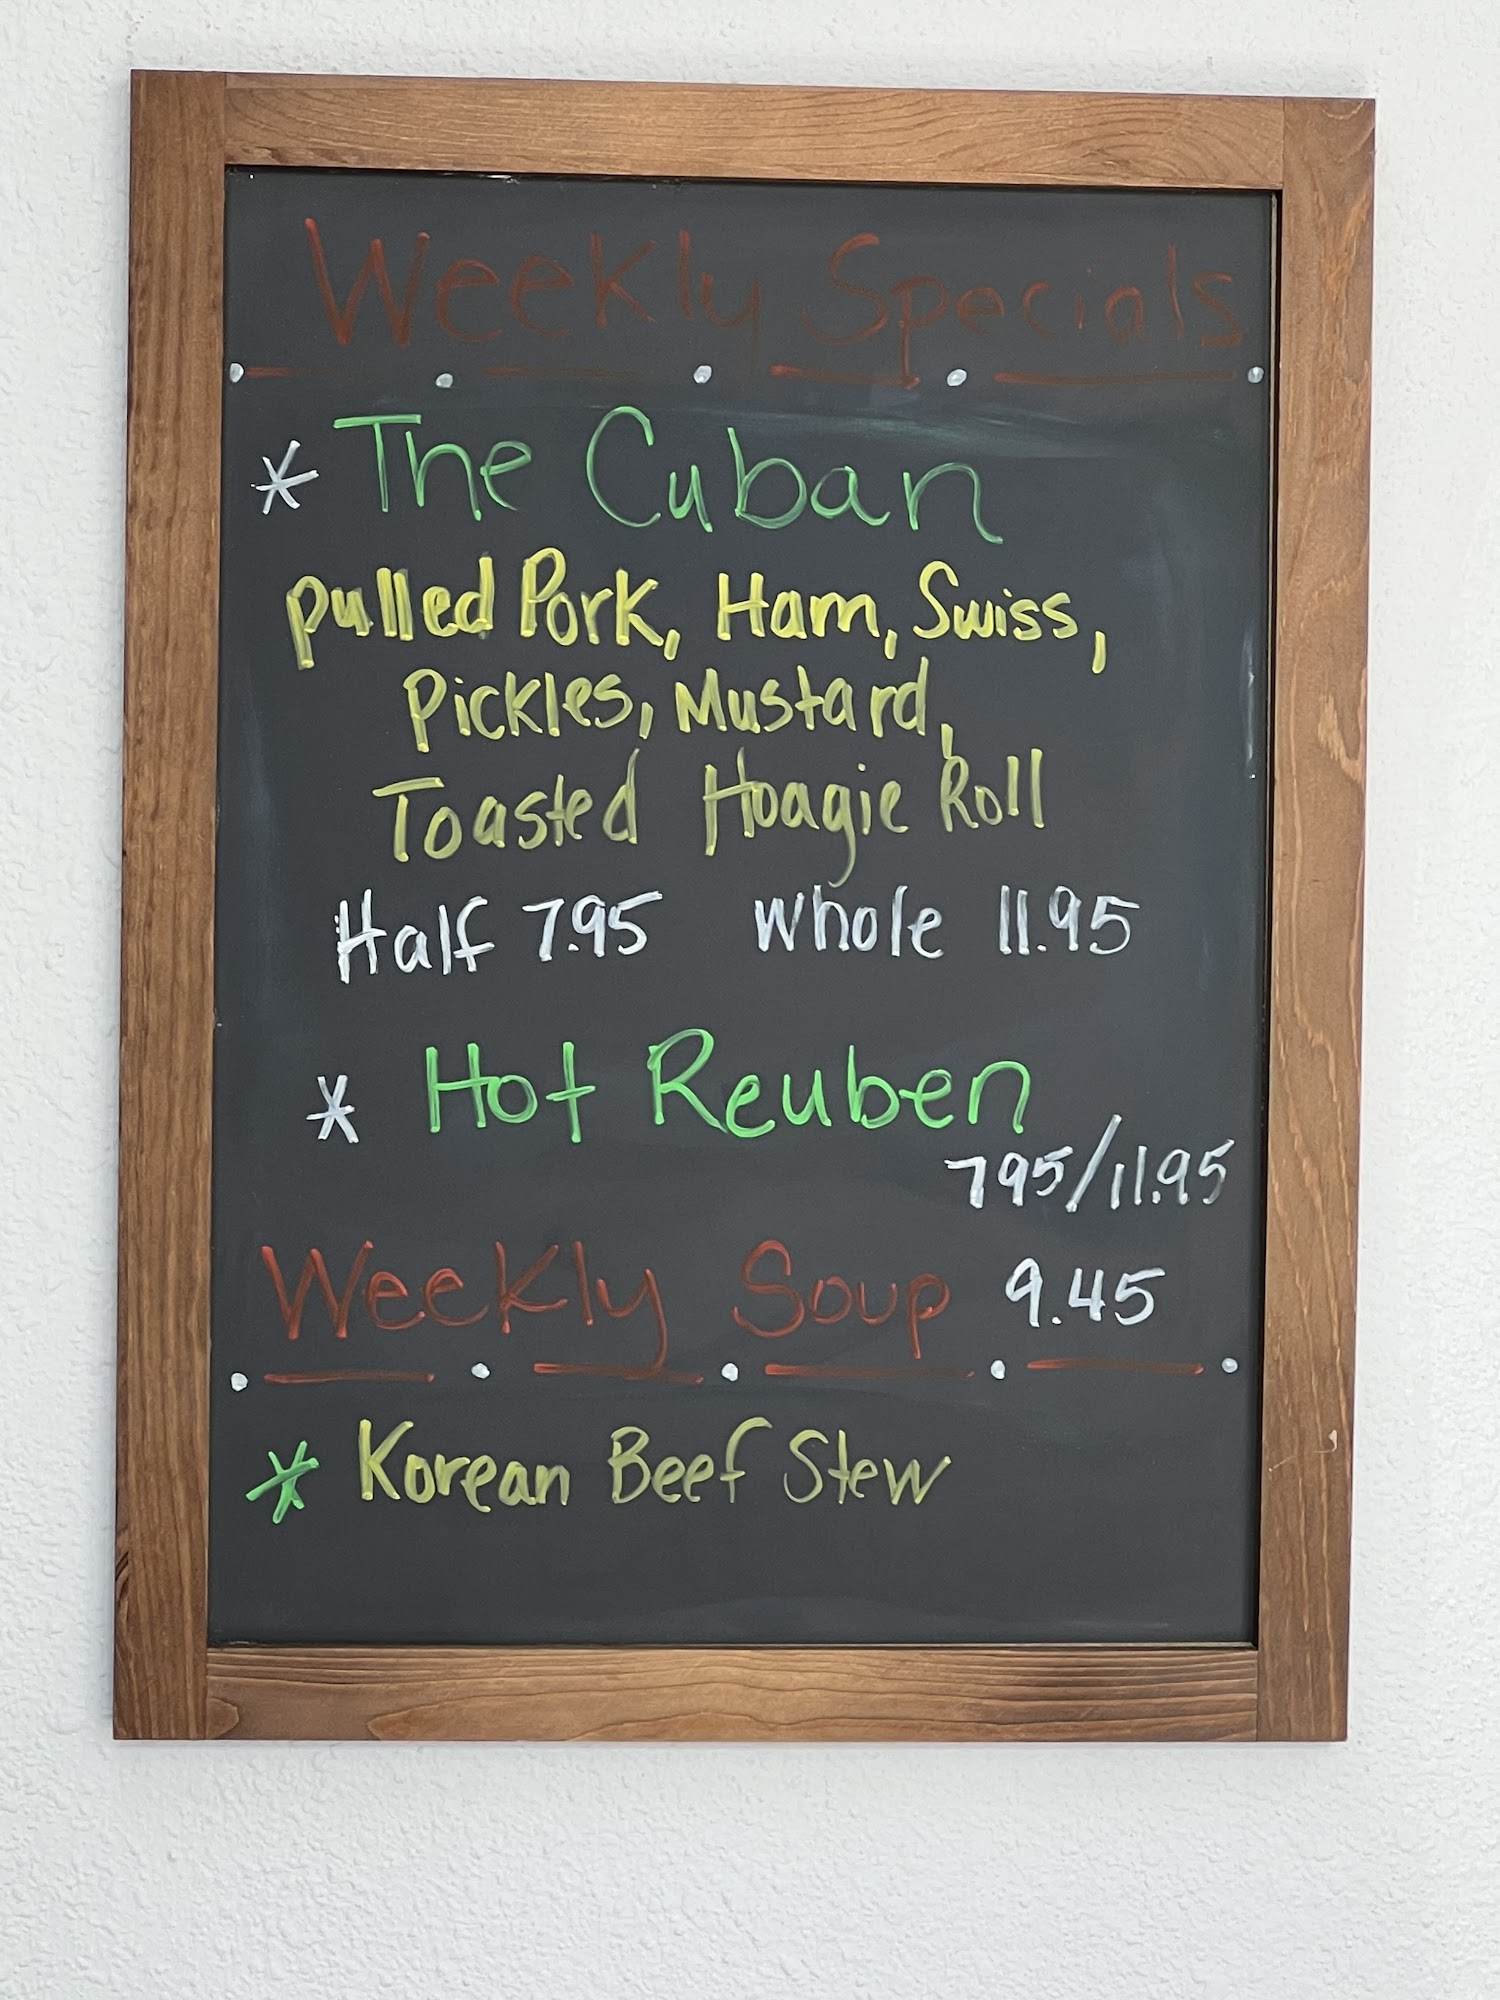 Weekly Specials
* The Cuban
Pulled Pork, Ham, Swiss,
Pickles, Mustard,
Toasted Hoagie Roll
Half 7.95 Whole 11.95
* Hot Reuben
795/11.95
Weekly Soup 9.45
* Korean Beef Stew